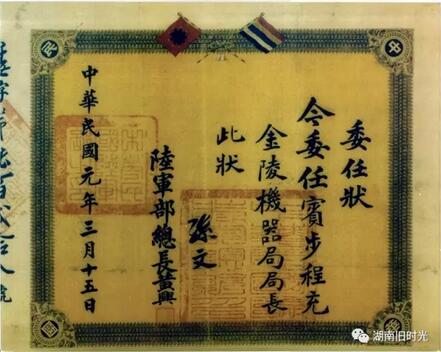 中
民
委任状
令委任賓步程充
金陵機器局局長
此状
孫文
陸軍部總長黃興
中華民國元年三月十五日
號
湖南旧时光